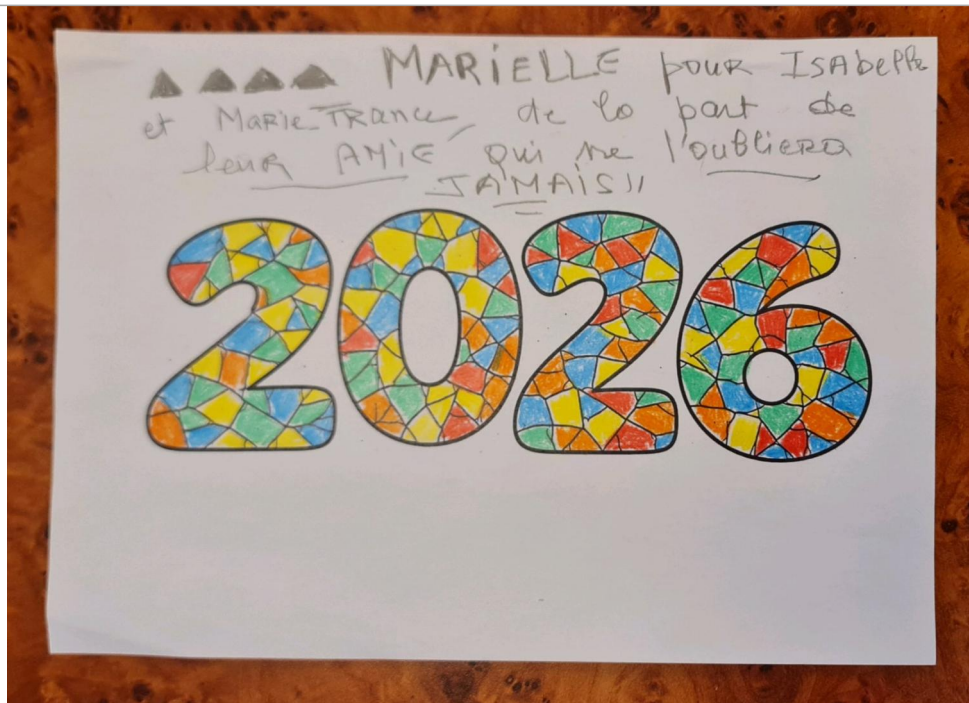 MARiELLE pour ISAbelle
et MARie FRance, de la part de
leuR AMiE qui ne l'oublieRa
JAMAiS !!
2026